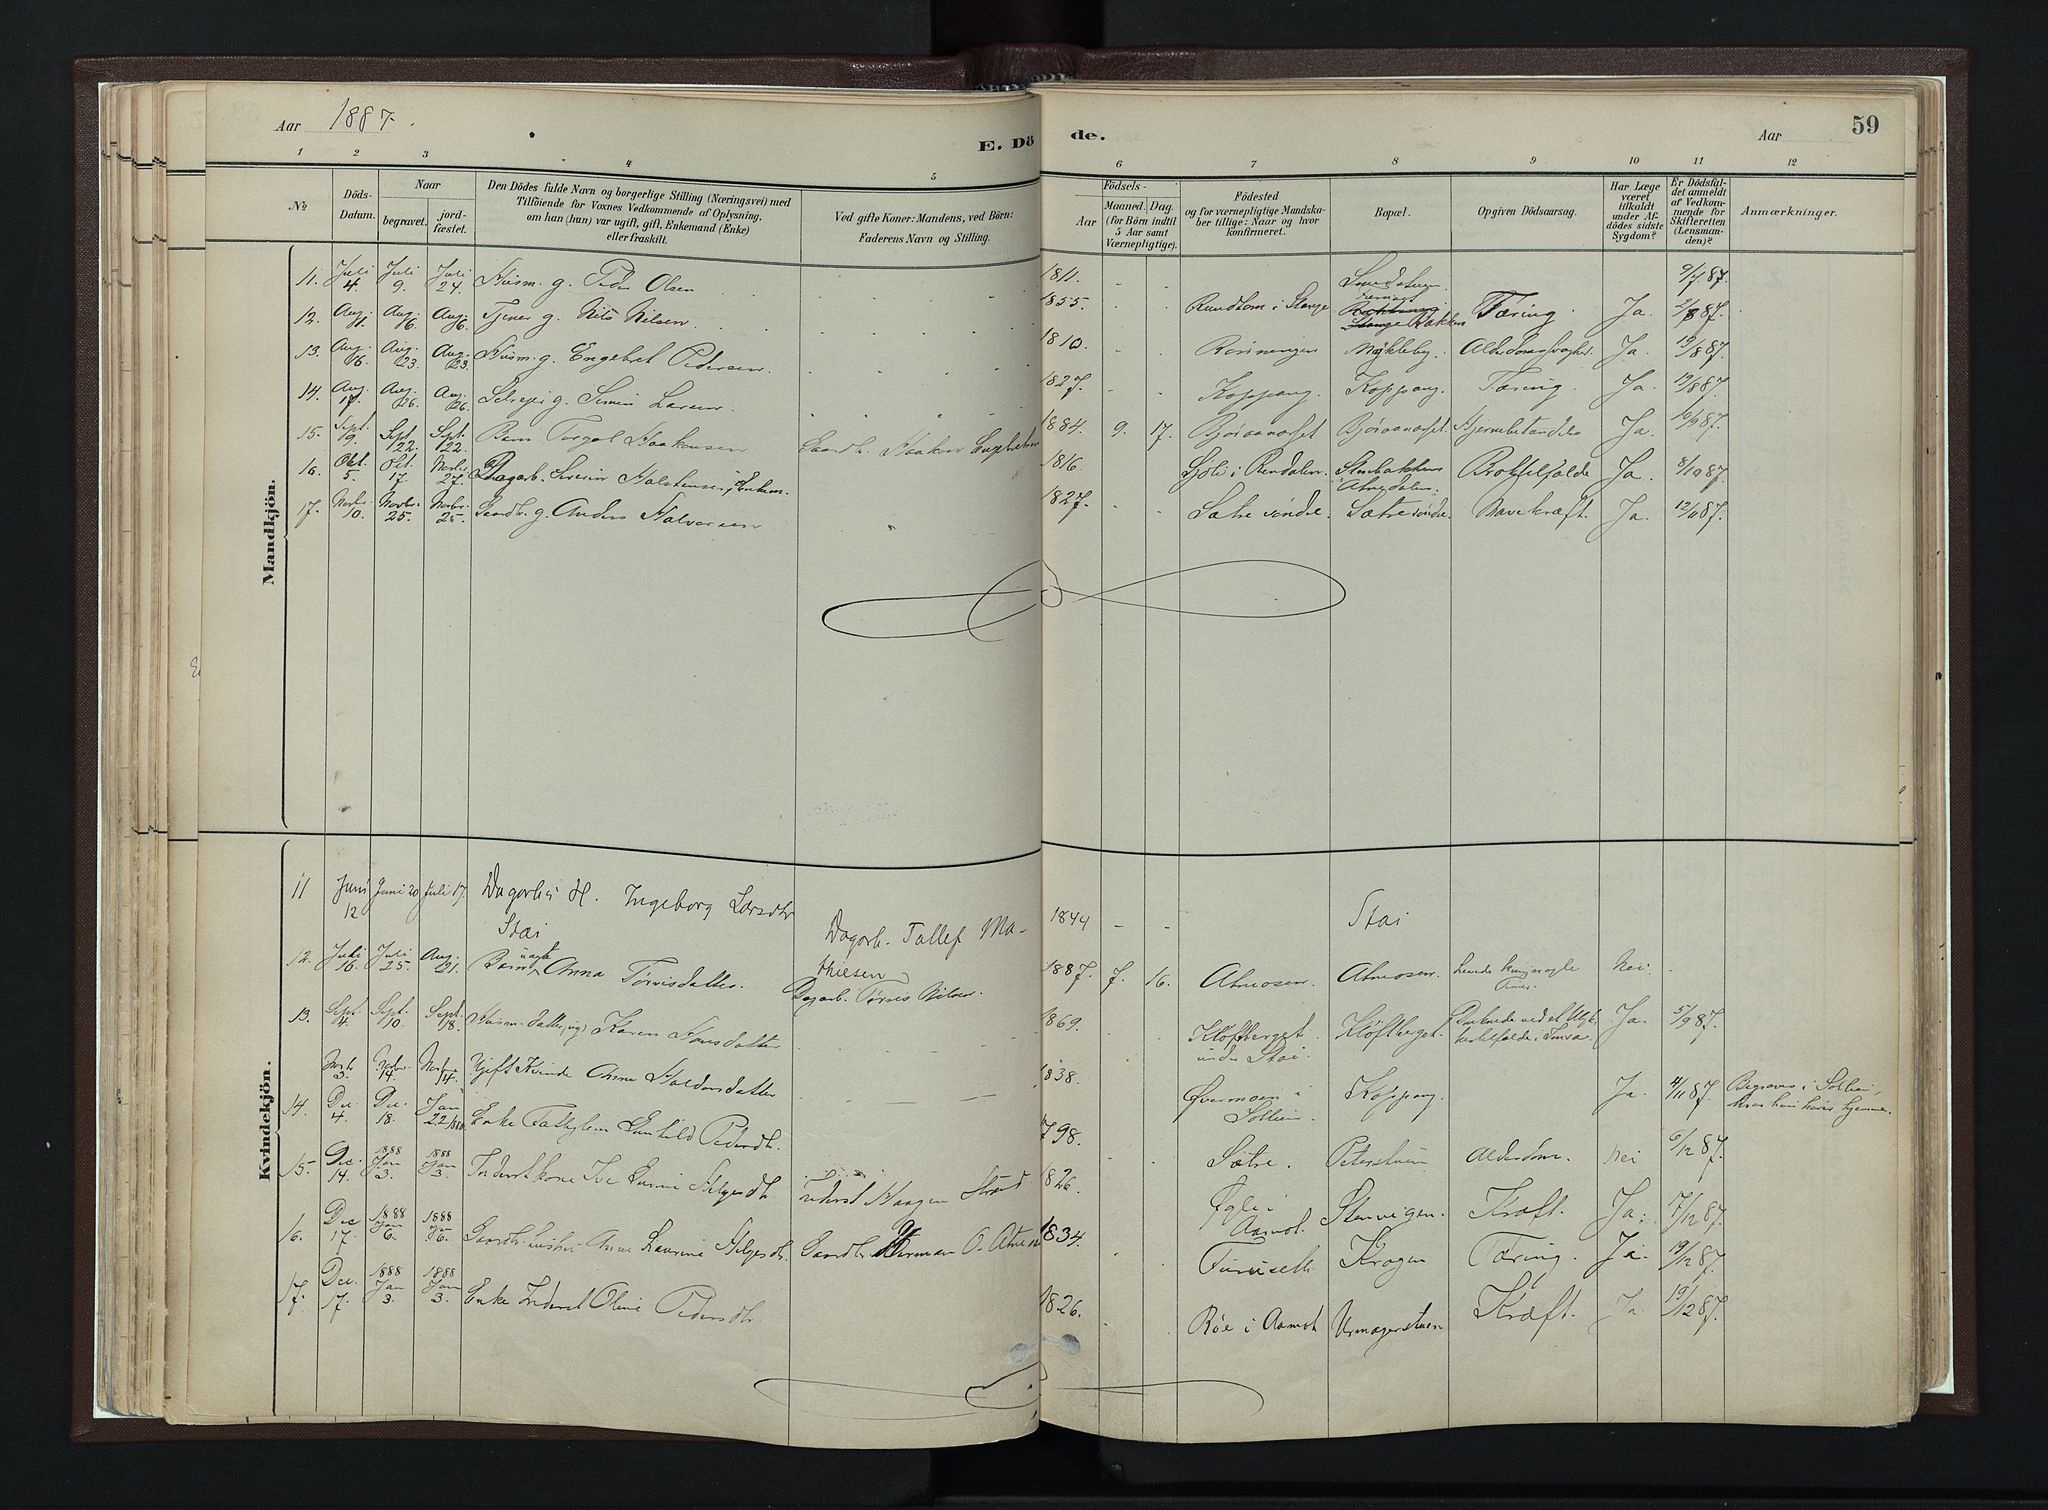 Aar 1887.
E. Dö
de.
Aar
59
1 2 3 4 5 6 7 8 9 10 11 12
№
Döds-
Datum.
Naar
begravet.
jord-
fæstet.
Den Dödes fulde Navn og borgerlige Stilling (Næringsvei) med
Tilföiende for Voxnes Vedkommende af Oplysning,
om han (hun) var ugift, gift, Enkemand (Enke)
eller fraskilt.
Ved gifte Koner: Mandens, ved Börn:
Faderens Navn og Stilling.
Födsels-
Aar
Maaned. Dag.
(for Börn indtil
5 Aar samt
Værnepligtige).
Födested
og for værnepligtige Mandska-
ber tillige: Naar og hvor
konfirmeret.
Bopæl.
Opgiven Dödsaarsag.
Har Læge
været
tilkaldt
under Af-
dödes sidste
Sygdom?
Er Dödsfal-
det anmeldt
af Vedkom-
mende for
Skifteretten
(Lensman-
den)?
Anmærkninger.
Mandkjön.
11. Juli 4. Juli 9. Juli 24. Husm. g. Peder Olsen 1811. 9/7 87.
12. Aug. 1. Aug. 6. Aug. 6. Tjener g. Nils Nilsen 1855. Rundtom i Stange Bakken Tæring. Ja. 2/8 87.
13. Aug. 16. Aug. 23. Aug. 23. Husm. g. Engebret Pedersen. 1810. Mykleby. Ja. 19/8 87.
14. Aug. 17. Aug. 26. Aug. 26. Selveier g. Simen Larsen. 1827. Koppang. Koppang. Tæring. Ja. 19/8 87.
15. Sept. 19. Sept. 22. Sept. 22. Barn Torgal Haakensen Gaardbr. Haaken 1884. 9. 17. Bjøraanæset Bjøraanæset. Hjernebetændelse Ja. 9/87.
16. Okt. 5. Okt. 17. Novbr. 27. Dagarb. Severin Halstensen, Enkem. 1816. Sjøli i Rendalen. Stenbakken Atnedalen. Ja. 8/10 87.
17. Novbr. 10. Novbr. 25. Novbr. 25. Gaardbr. g. Anders Halvorsen 1827. Sætre søndre. Sætre søndre. Mavekræft. Ja. 12/11 87.
Kvindekjön.
11 Juni 12 Juni 20 Juli 17. Dagarbei H. Ingeborg Larsdtr
Stai Dagarb. Tollef Ma-
thiesen 1844 Stai
12. Juli 16. Juli 25. Aug. 21. Barn uægte Anna Tørrisdatter. Dagarb. Tørris Nilsen. 1887. 7. 16. Atneosen. Atneosen. Nei.
13. Sept. 4. Sept. 10. Sept. 18. Husm. Datter, ugi. Karen Hansdatter 1869. Kløftberget
under Stai. Kløftberget. Druknede ved et Ulyk-
kestilfælde i Imsa. Ja. 5/9 87.
Novbr. 3. Novbr. 14. Novbr. 14. Gift Kvinde Anne Haldorsdatter 1838. Øvermoen i
Sollien. Koppang. Ja. 4/11 87. Begraves i Sollien,
hvor hun hører hjemme.
14. Dec. 4. Dec. 18. Jan 22/1888. Enke Fattiglem Gunhild Pedersdtr. 1798. Sætre. Peterstuen Alderdom. Nei 6/12 87.
15. Dec. 14. 1888 Jan 3. 1888 Jan 3. Inderstkone Helgesdtr. Inderst Haagen Strand 1826. Ygle i
Aamot. Stenvigen. Kræft. Ja. 17/12 87.
16. Dec 17. 1888 Jan 6. 1888 Jan 6. Gaardbr.hustru Anne Laurine Helgesdtr. Gaardbr. Herman O. Atneosen 1834. Furuseth Krogen Tæring. Ja. 19/12 87.
17. Dec. 17. 1888 Jan 3. 1888 Jan 3. Enke Inderst Oline Pedersdtr. 1826. Røe i Aamot Urmagerstuen Kræft. Ja. 19/12 87.